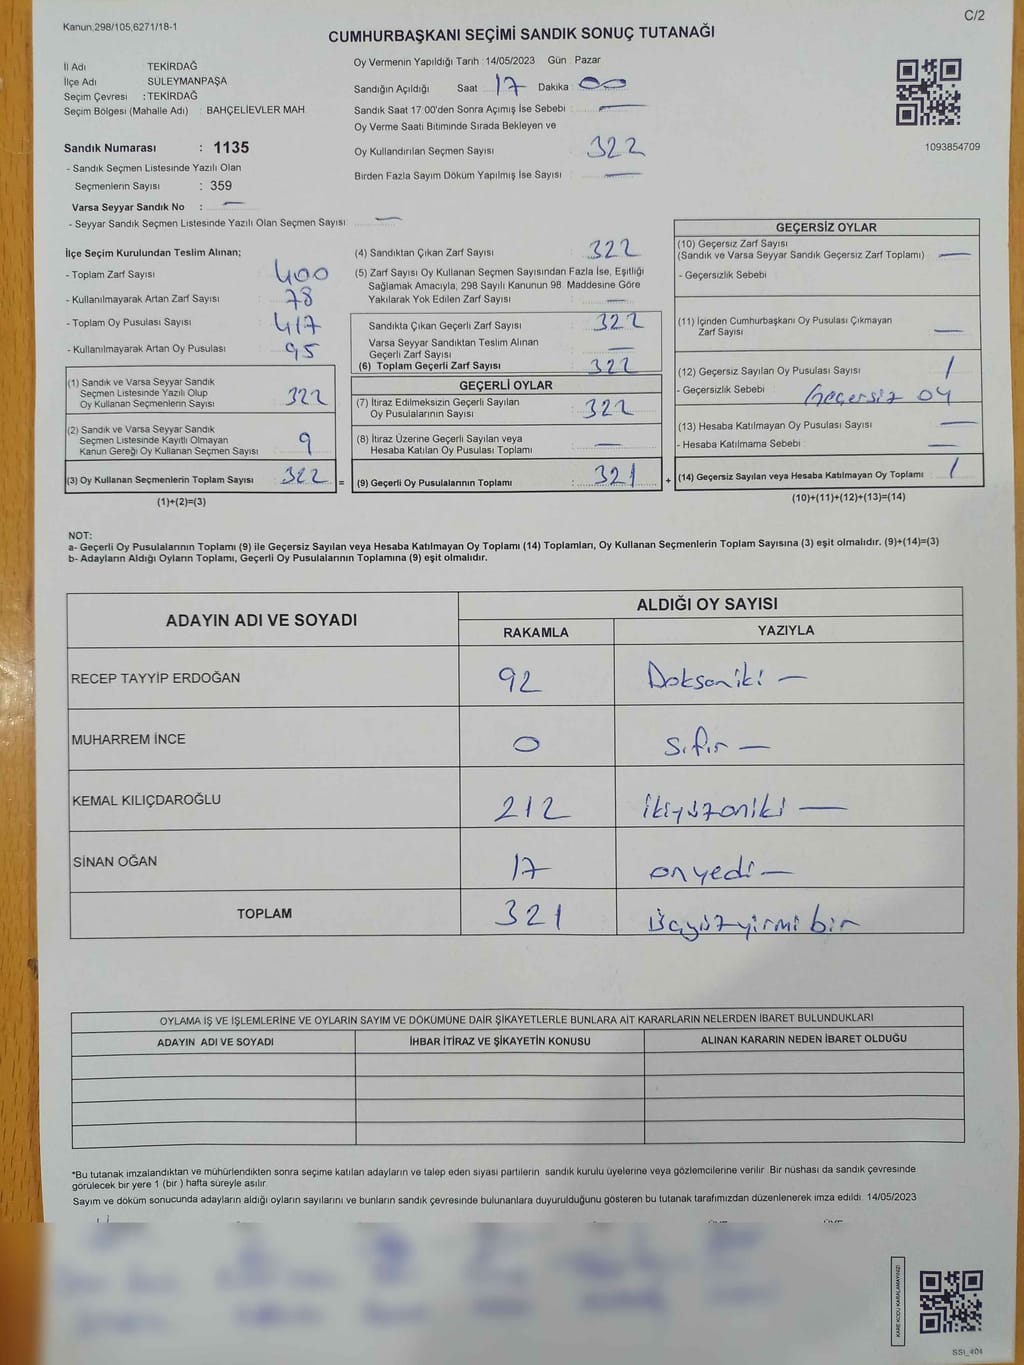 Kanun,298/105,6271/18-1
C/2
CUMHURBAŞKANI SEÇİMİ SANDIK SONUÇ TUTANAĞI
İl Adı : TEKİRDAĞ
İlçe Adı : SÜLEYMANPAŞA
Seçim Çevresi : TEKİRDAĞ
Seçim Bölgesi (Mahalle Adı) : BAHÇELİEVLER MAH
Sandık Numarası : 1135
- Sandık Seçmen Listesinde Yazılı Olan
Seçmenlerin Sayısı : 359
Varsa Seyyar Sandık No : —
- Seyyar Sandık Seçmen Listesinde Yazılı Olan Seçmen Sayısı: —
Oy Vermenin Yapıldığı Tarih :14/05/2023 Gün : Pazar
Sandığın Açıldığı Saat 17 Dakika 00
Sandık Saat 17:00'den Sonra Açımış İse Sebebi : —
Oy Verme Saati Bitiminde Sırada Bekleyen ve
Oy Kullandırılan Seçmen Sayısı 322
Birden Fazla Sayım Döküm Yapılmış İse Sayısı : —
1093854709
İlçe Seçim Kurulundan Teslim Alınan;
- Toplam Zarf Sayısı 400
- Kullanılmayarak Artan Zarf Sayısı 78
- Toplam Oy Pusulası Sayısı : 417
- Kullanılmayarak Artan Oy Pusulası : 95
(1) Sandık ve Varsa Seyyar Sandık
Seçmen Listesinde Yazılı Olup
Oy Kullanan Seçmenlerin Sayısı 322
(2) Sandık ve Varsa Seyyar Sandık
Seçmen Listesinde Kayıtlı Olmayan
Kanun Gereği Oy Kullanan Seçmen Sayısı 9
(3) Oy Kullanan Seçmenlerin Toplam Sayısı : 322 =
(1)+(2)=(3)
(4) Sandıktan Çıkan Zarf Sayısı : 322
(5) Zarf Sayısı Oy Kullanan Seçmen Sayısından Fazla İse, Eşitliği
Sağlamak Amacıyla, 298 Sayılı Kanunun 98. Maddesine Göre
Yakılarak Yok Edilen Zarf Sayısı : —
Sandıkta Çıkan Geçerli Zarf Sayısı : 322
Varsa Seyyar Sandıktan Teslim Alınan
Geçerli Zarf Sayısı —
(6) Toplam Geçerli Zarf Sayısı : 322
GEÇERLİ OYLAR
(7) İtiraz Edilmeksizin Geçerli Sayılan
Oy Pusulalarının Sayısı : 322
(8) İtiraz Üzerine Geçerli Sayılan veya
Hesaba Katılan Oy Pusulası Toplamı : —
(9) Geçerli Oy Pusulalarının Toplamı : 321 +
GEÇERSİZ OYLAR
(10) Geçersiz Zarf Sayısı
(Sandık ve Varsa Seyyar Sandık Geçersiz Zarf Toplamı) : —
- Geçersizlik Sebebi :
(11) İçinden Cumhurbaşkanı Oy Pusulası Çıkmayan
Zarf Sayısı : —
(12) Geçersiz Sayılan Oy Pusulası Sayısı : 1
- Geçersizlik Sebebi : Geçersiz oy
(13) Hesaba Katılmayan Oy Pusulası Sayısı : —
- Hesaba Katılmama Sebebi : —
(14) Geçersiz Sayılan veya Hesaba Katılmayan Oy Toplamı : 1
(10)+(11)+(12)+(13)=(14)
NOT:
a- Geçerli Oy Pusulalarının Toplamı (9) ile Geçersiz Sayılan veya Hesaba Katılmayan Oy Toplamı (14) Toplamları, Oy Kullanan Seçmenlerin Toplam Sayısına (3) eşit olmalıdır. (9)+(14)=(3)
b- Adayların Aldığı Oyların Toplamı, Geçerli Oy Pusulalarının Toplamına (9) eşit olmalıdır.
ADAYIN ADI VE SOYADI
ALDIĞI OY SAYISI
RAKAMLA YAZIYLA
RECEP TAYYİP ERDOĞAN 92 Doksaniki —
MUHARREM İNCE 0 sıfır —
KEMAL KILIÇDAROĞLU 212 ikiyüzoniki —
SİNAN OĞAN 17 onyedi —
TOPLAM 321 üçyüzyirmibir
OYLAMA İŞ VE İŞLEMLERİNE VE OYLARIN SAYIM VE DÖKÜMÜNE DAİR ŞİKAYETLERLE BUNLARA AİT KARARLARIN NELERDEN İBARET BULUNDUKLARI
ADAYIN ADI VE SOYADI İHBAR İTİRAZ VE ŞİKAYETİN KONUSU ALINAN KARARIN NEDEN İBARET OLDUĞU
*Bu tutanak imzalandıktan ve mühürlendikten sonra seçime katılan adayların ve talep eden siyasi partilerin sandık kurulu üyelerine veya gözlemcilerine verilir. Bir nüshası da sandık çevresinde
görülecek bir yere 1 (bir ) hafta süreyle asılır.
Sayım ve döküm sonucunda adayların aldığı oyların sayılarını ve bunların sandık çevresinde bulunanlara duyurulduğunu gösteren bu tutanak tarafımızdan düzenlenerek imza edildi. 14/05/2023
KARE KODU KARALAMAYINIZ!
SSt_404